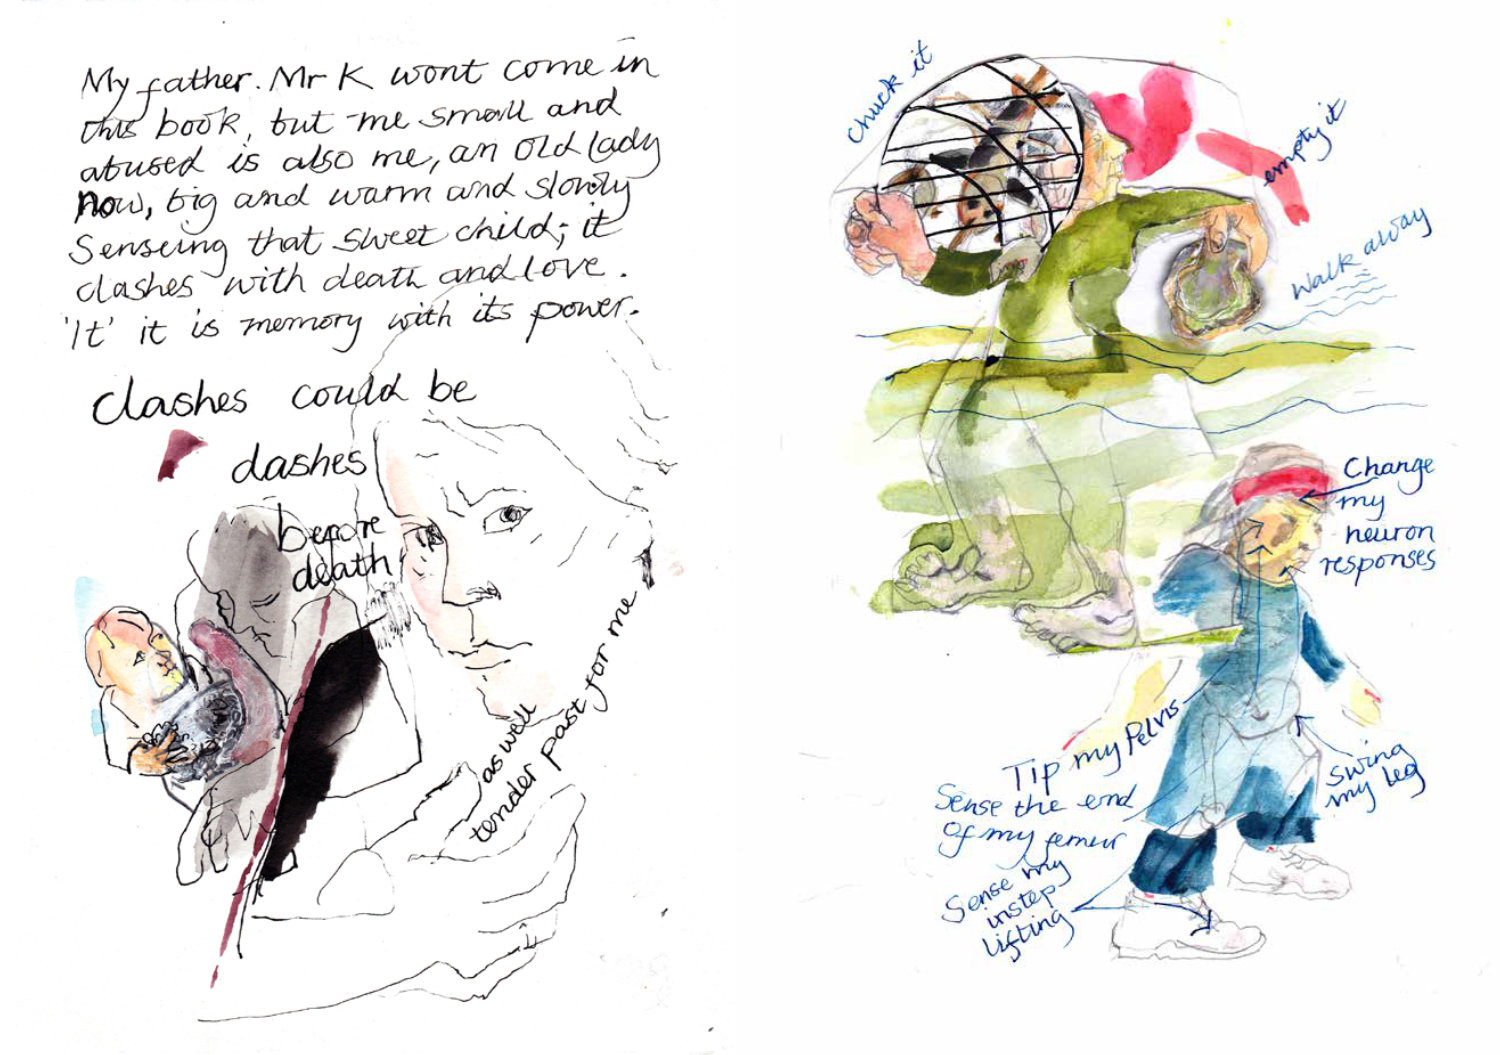 My father. Mr K wont come in
this book, but me small and
abused is also me, an old lady
now, big and warm and slowly
Senseing that sweet child; it
clashes with death and love.
'It' it is memory with its power.
clashes could be
dashes
before
death
as well
tender past for me
Chuck it
empty it
Walk away
Change
my
neuron
responses
Tip my Pelvis
Swing
my leg
Sense the end
of my femur
Sense my
instep
lifting